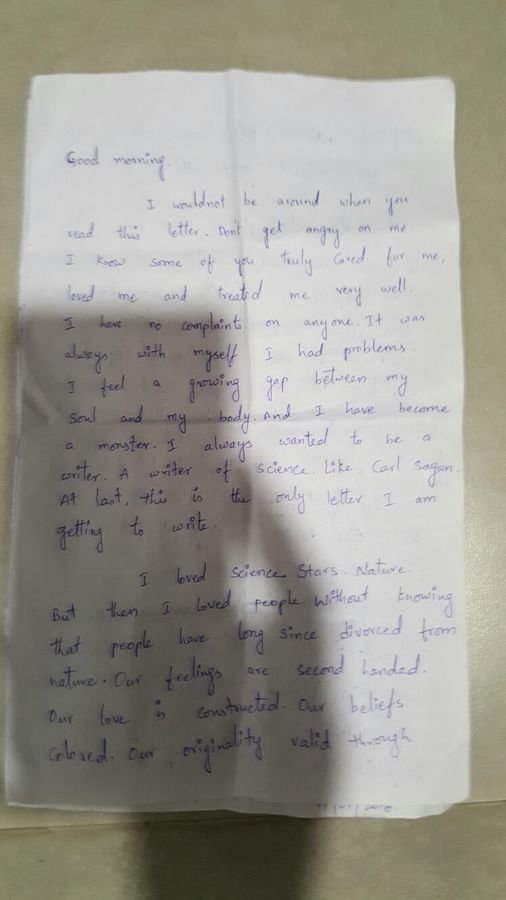 Good morning.
I wouldnot be around when you
read this letter. Dont get angry on me.
I know some of you truly cared for me,
loved me and treated me very well.
I have no complaints on anyone. It was
always with myself I had problems.
I feel a growing gap between my
soul and my body. And I have become
a monster. I always wanted to be a
writer. A writer of science. Like Carl Sagan.
At last, this is the only letter I am
getting to write.
I loved Science. Stars. Nature.
But then I loved people without knowing
that people have long since divorced from
nature. Our feelings are second handed.
Our love is constructed. Our beliefs
colored. Our originality valid through